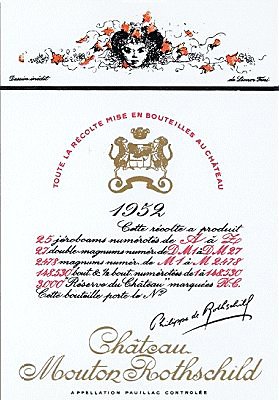 Dessin inédit de Léonor Fini
TOUTE LA RÉCOLTE MISE EN BOUTEILLES AU CHÂTEAU
1952
Cette récolte a produit
25 jéroboams numérotés de A à Z
27 double-magnums numér. de DM1 à DM27
2478 magnums numér. de M1 à M2478
148.530 bout. & ½ bout. numérotées de 1 à 148.530
3000 Réserve du Château marquées R.C.
Cette bouteille porte le Nº
Philippe de Rothschild
Château
Mouton Rothschild
APPELLATION PAUILLAC CONTRÔLÉE